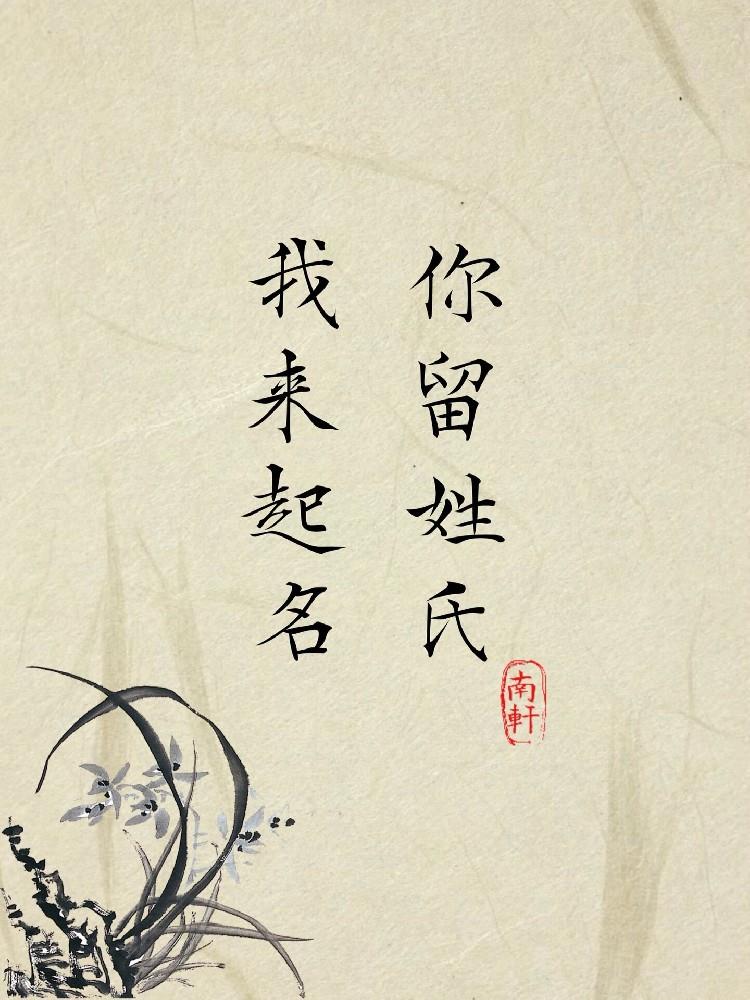 你留姓氏
我来起名
南軒